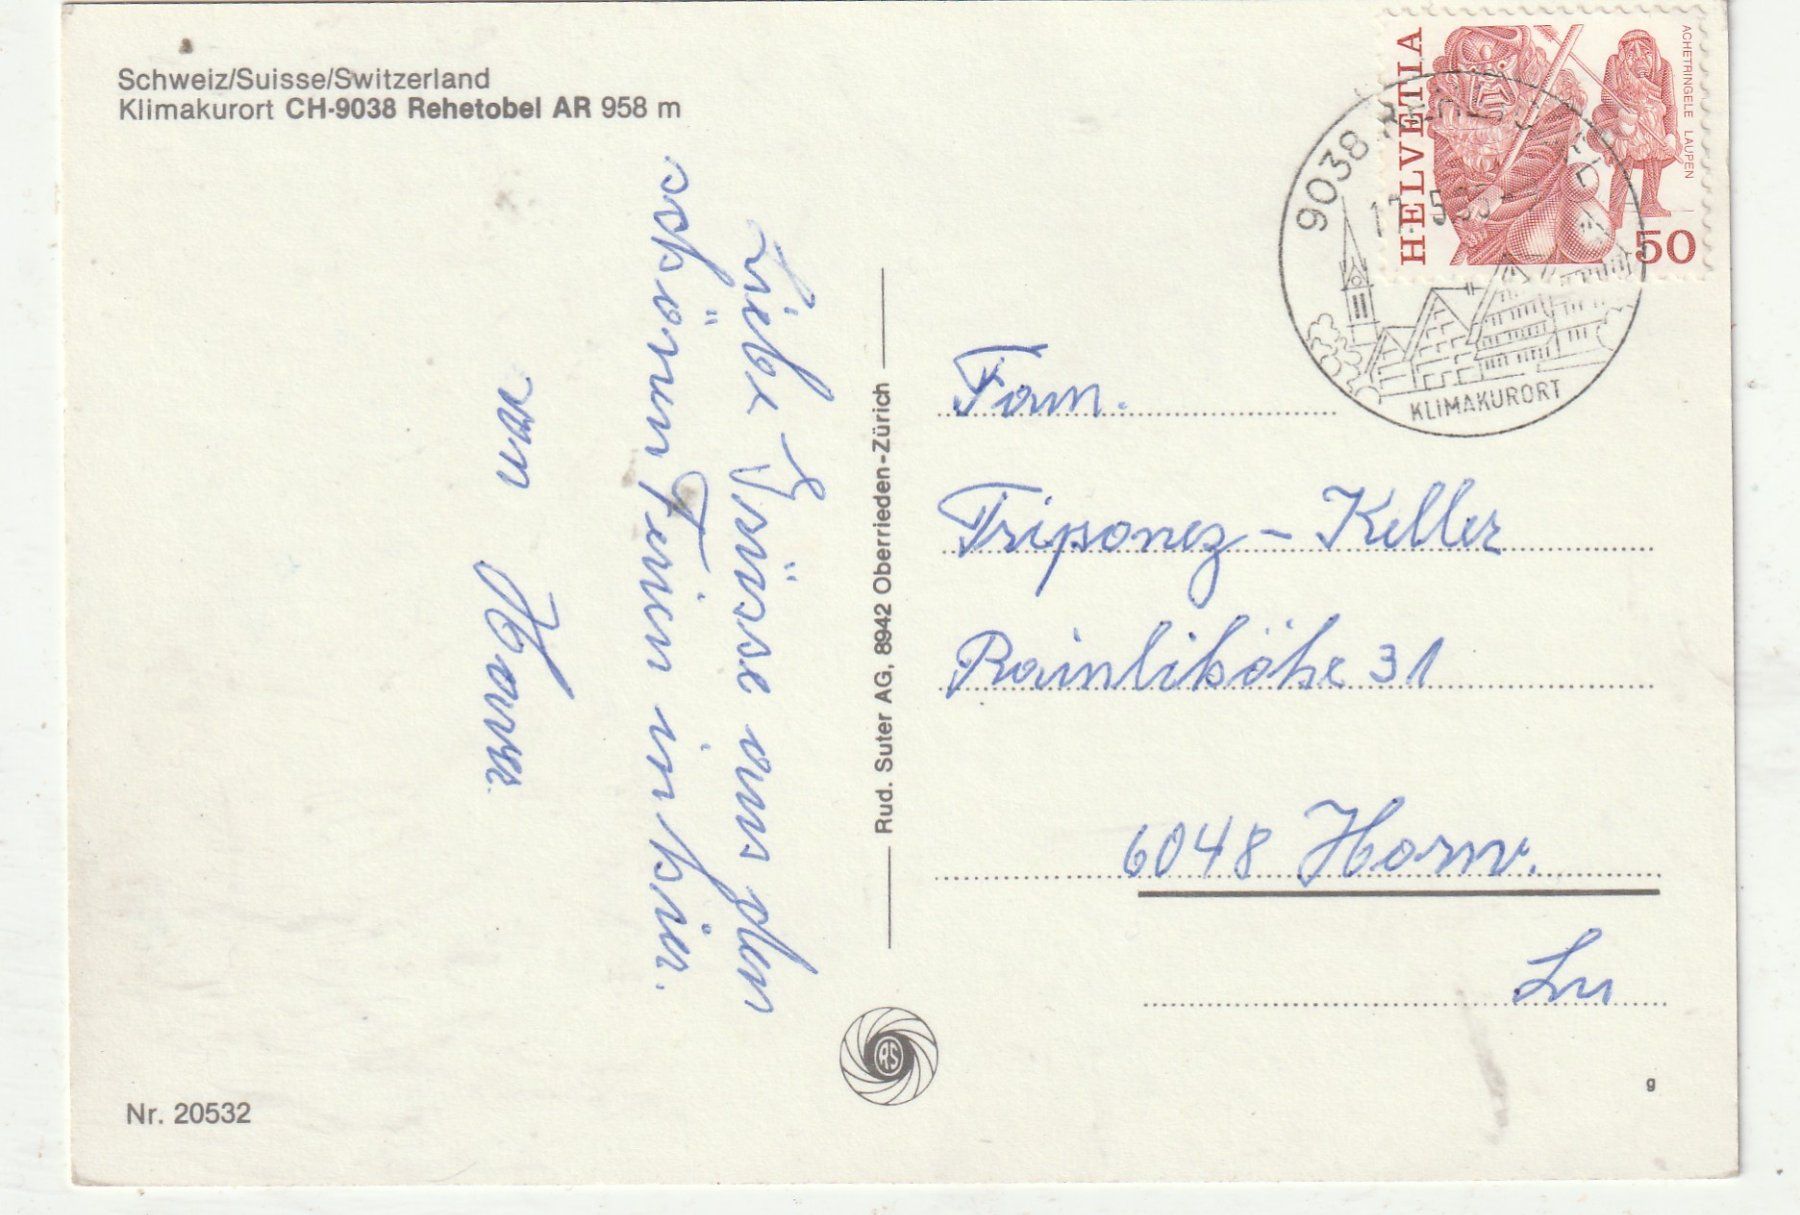 Schweiz/Suisse/Switzerland
Klimakurort CH-9038 Rehetobel AR 958 m
Liebe Grüsse aus den
schönen Ferien in hier.
von
Rud. Suter AG, 8942 Oberrieden-Zürich
RS
Nr. 20532
HELVETIA
ACHETRINGELE LAUPEN
50
9038
KLIMAKURORT
Fam.
Triponez-Keller
Rainlihöhe 31
6048 Horw.
Lu
g